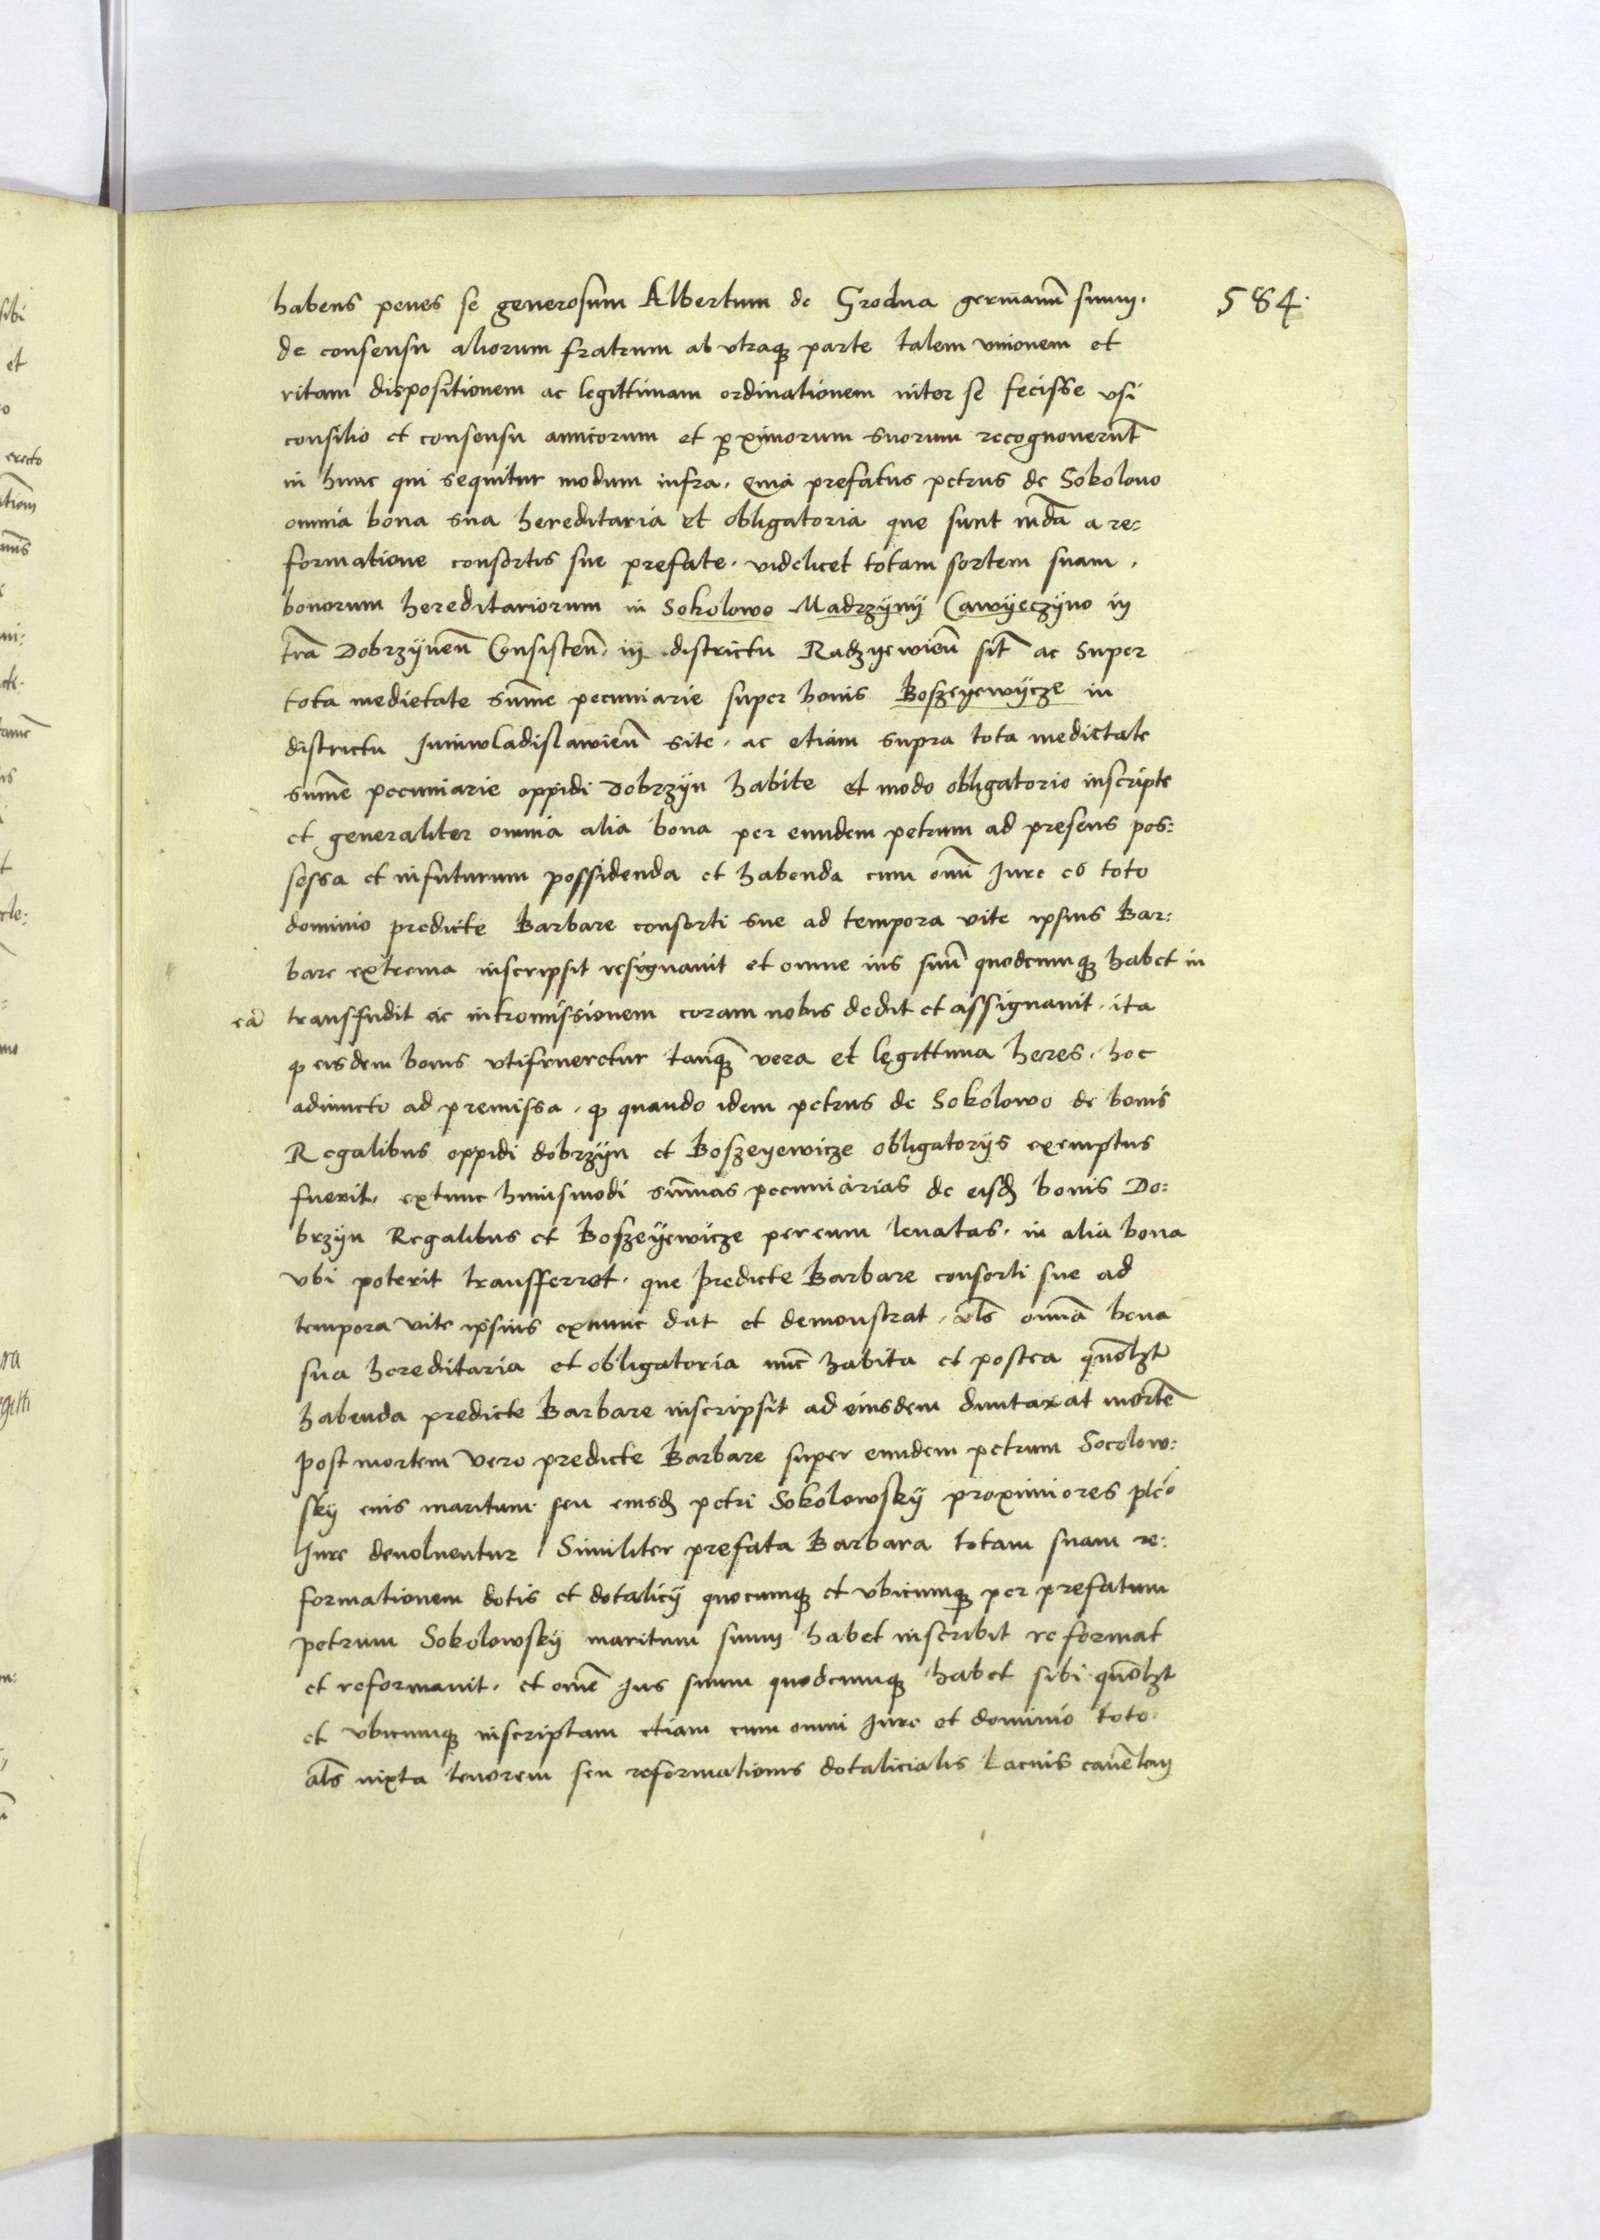 584.
habens penes se generosum Albertum de Grodna germanũ suum.
de consensu aliorum fratrum ab vtraqꝫ parte talem vnionem et
ritam dispositionem ac legittimam ordinationem inter se fecisse vsi
consilio et consensu amicorum et ꝓximorum suorum recognouerũt
in hunc qui sequitur modum infra. Quia prefatus petrus de Sokolouo
omnia bona sua hereditaria et obligatoria que sunt a re:
formatione consortis sue prefate. videlicet totam sortem suam.
bonorum hereditariorum in Sokolowo Madrzÿnÿ Cawÿeczÿno in
tr̃a Dobrzÿneñ Consisteñ. in districtu Radzyewieñ sit̃ ac super
tota medietate sum̃e pecuniarie super bonis Boszeyewÿcze in
districtu Juniwladislawieñ site. ac etiam supra tota medietate
sum̃e pecuniarie oppidi Dobrzÿn habite et modo obligatorio inscripte
et generaliter omnia alia bona per eundem petrum ad presens pos:
sessa et infuturum possidenda et habenda cum om̃i Jure et toto
dominio predicte Barbare consorti sue ad tempora vite ipsius Bar:
bare extrema inscripsit resignauit et omne ius suũ quodcumqꝫ habet in
eã transfudit ac intromissionem coram nobis dedit et assignauit. ita
ꝙ eisdem bonis vtifrueretur tanqꝫ vera et legittima heres. hoc
adiuncto ad premissa. ꝙ quando idem petrus de Sokolowo de bonis
Regalibus oppidi dobrzÿn et Boszeyewicze obligatorÿs exemptus
fuerit. extunc huiusmodi sum̃as pecuniarias de eisđ bonis Do:
brzÿn Regalibus et Boszeÿewicze per eum leuatas. in alia bona
vbi poterit transferret. que predicte Barbare consorti sue ad
tempora vite ipsius exnunc dat et demonstrat. al̃s om̃ia bona
sua hereditaria et obligatoria nũc habita et postea quõlꝫt
habenda predicte Barbare inscripsit ad eiusdem duntaxat mortẽ
post mortem vero predicte Barbare super eundem petrum Socolow:
skÿ eius maritum seu eiusđ petri Sokolowskÿ proximiores
Jure deuoluentur Similiter prefata Barbara totam suam re:
formationem dotis et dotalicÿ quocumqꝫ et vbicumqꝫ per prefatum
petrum Sokolowskÿ maritum suum habet inscribit reformat
et reformauit. et om̃e Jus suum quodcumqꝫ habet sibi quõlꝫt
et vbicumqꝫ inscriptam etiam cum omni Jure et dominio toto.
al̃s iuxta tenorem seu reformationis dotalicialis